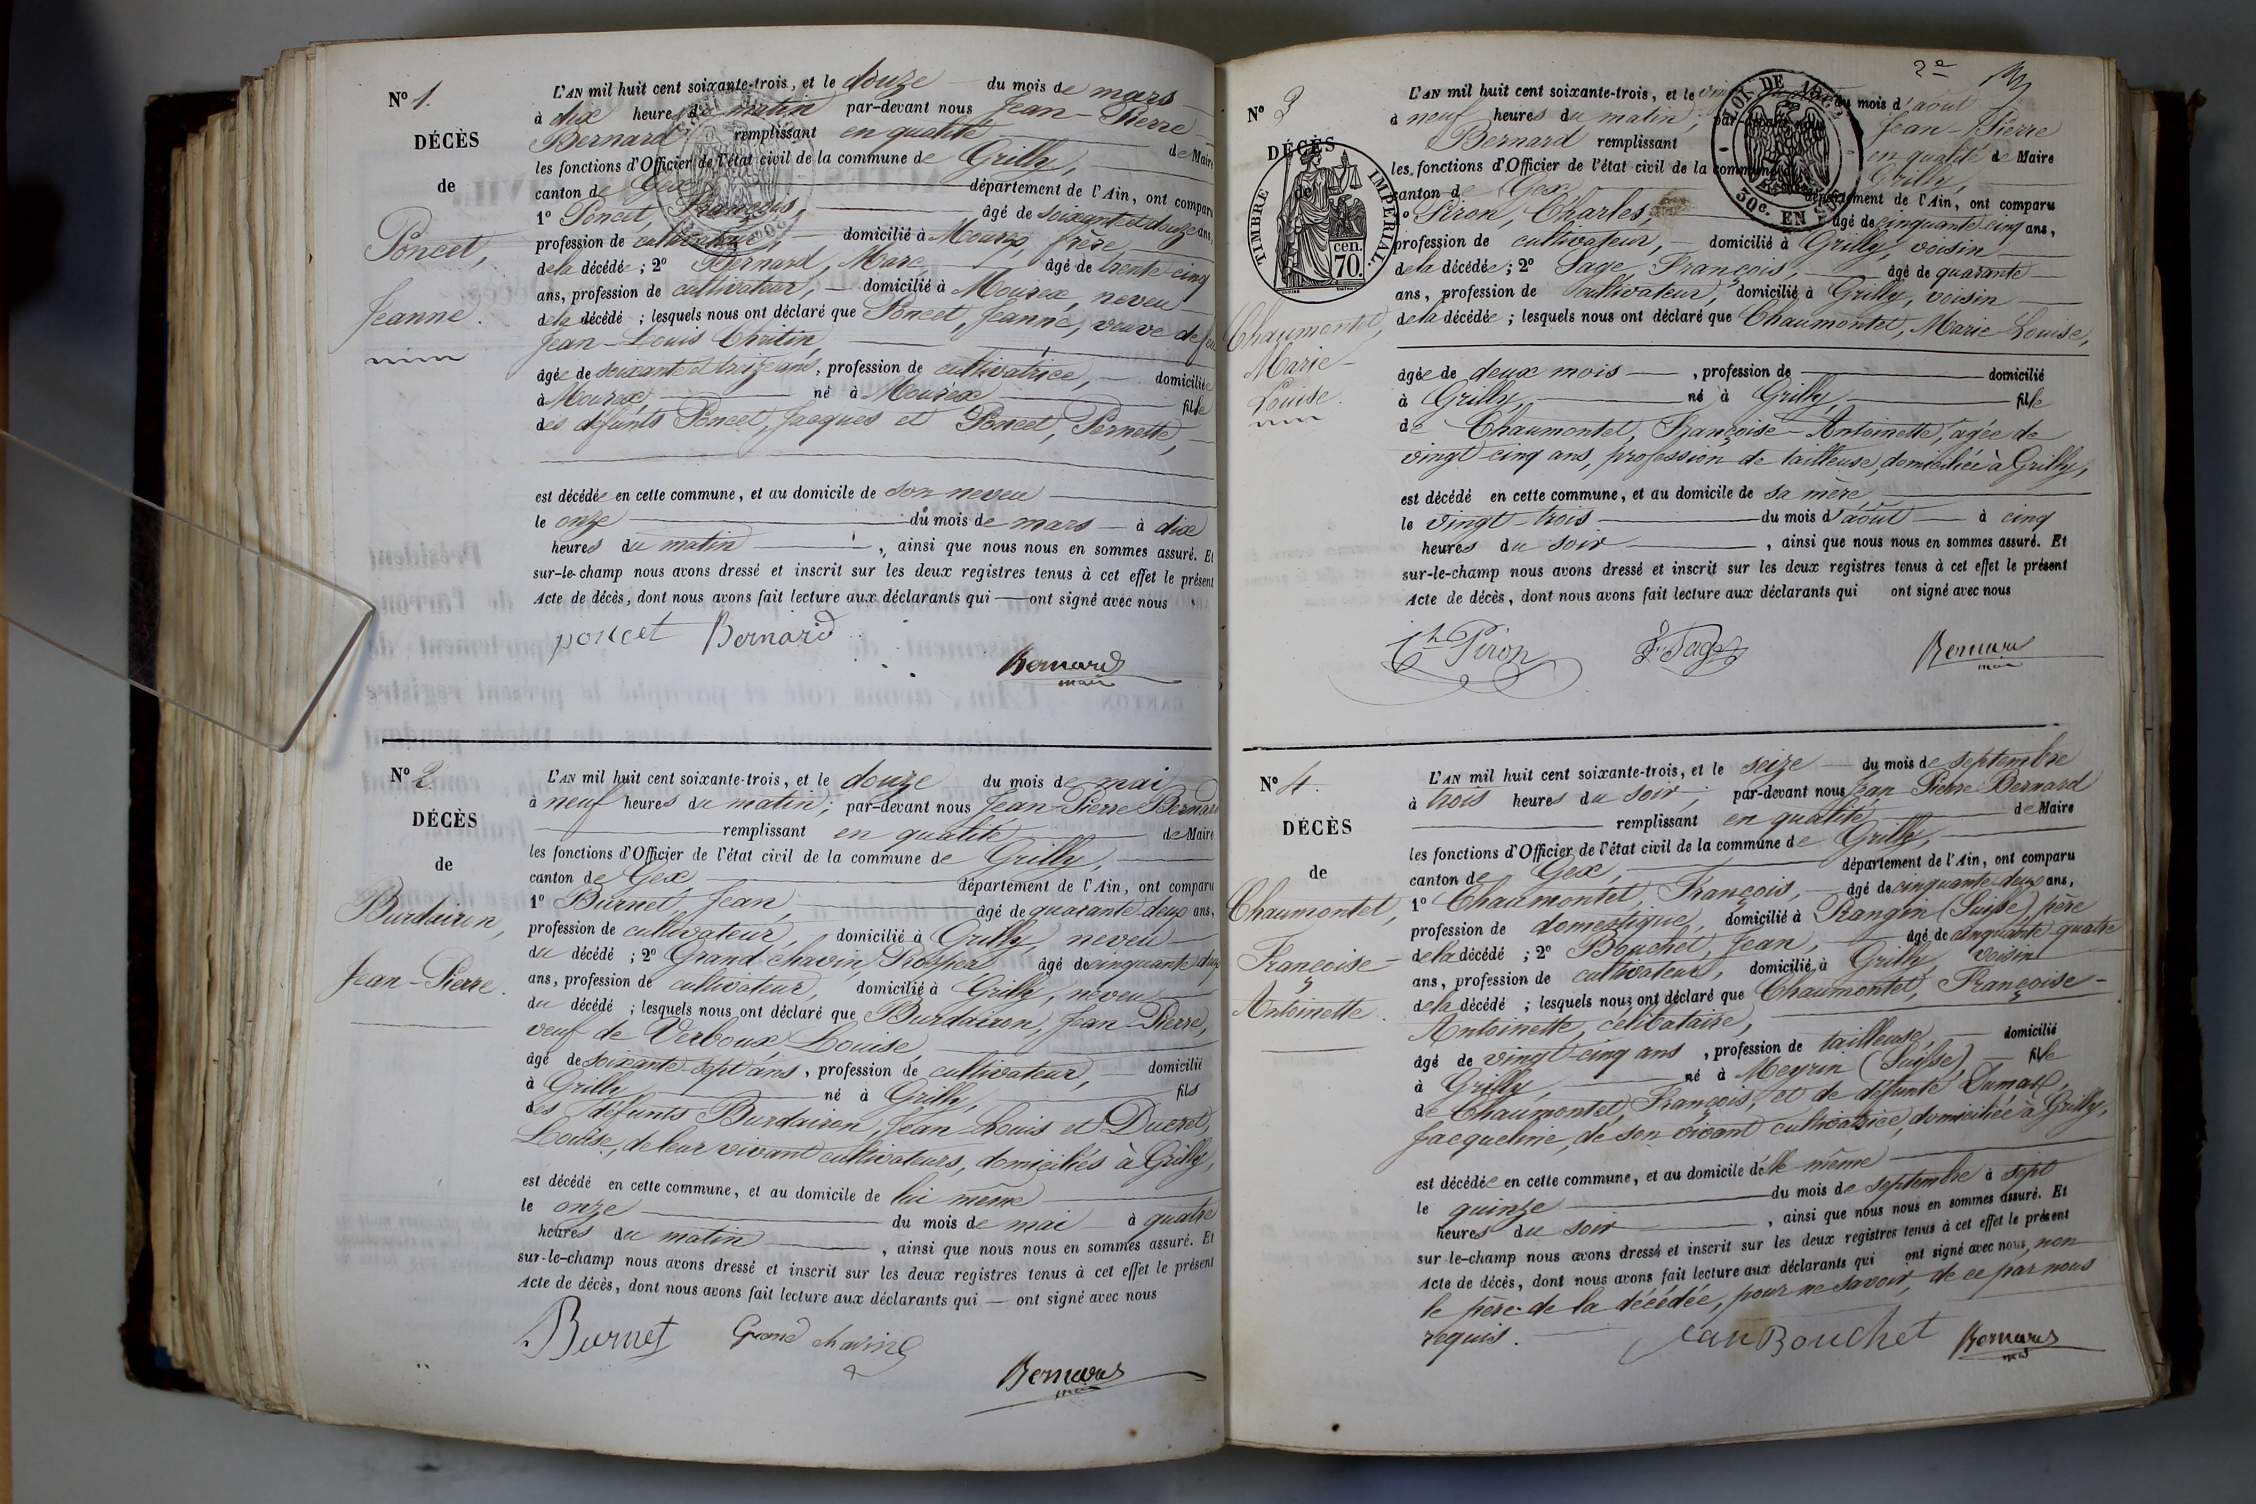 N° 1.
DÉCÈS
de
Poncet,
Jeanne.
L'AN mil huit cent soixante-trois, et le douze du mois de mars
à dix heures du matin par-devant nous Jean-Pierre
Bernard remplissant en qualité de Maire
les fonctions d'Officier de l'état civil de la commune de Grilly,
canton de Gex département de l'Ain, ont comparu
1° Poncet, François, âgé de soixante et douze ans,
profession de cultivateur, domicilié à Mourex, frère
de la décédée ; 2° Bernard, Marc âgé de trente cinq
ans, profession de cultivateur, domicilié à Mourex, neveu
de la décédé ; lesquels nous ont déclaré que Poncet, Jeanne, veuve de feu
Jean-Louis
âgée de soixante et treize ans, profession de cultivatrice, domiciliée
à Mourex né à Mourex fille
des défunts Poncet, Jacques et Poncet, Pernette,
est décédée en cette commune, et au domicile de son neveu
le onze du mois de mars à dix
heures du matin, ainsi que nous nous en sommes assuré. Et
sur-le-champ nous avons dressé et inscrit sur les deux registres tenus à cet effet le présent
Acte de décès, dont nous avons fait lecture aux déclarants qui ont signé avec nous
poncet Bernard
Bernard
maire
N° 2.
DÉCÈS
de
Burdairon,
Jean-Pierre.
L'AN mil huit cent soixante-trois, et le douze du mois de mai
à neuf heures du matin ; par-devant nous Jean-Pierre Bernard
remplissant en qualité de Maire
les fonctions d'Officier de l'état civil de la commune de Grilly,
canton de Gex, département de l'Ain, ont comparu
1° Burnet, Jean, âgé de quarante deux ans,
profession de cultivateur, domicilié à Grilly, neveu
du décédé ; 2° Grand chavin, Prosper âgé de cinquante deux
ans, profession de cultivateur, domicilié à Grilly, neveu
du décédé ; lesquels nous ont déclaré que Burdairon, Jean-Pierre,
veuf de Verboux, Louise,
âgé de soixante-sept ans, profession de cultivateur, domicilié
à Grilly né à Grilly, fils
des défunts Burdairon, Jean Louis et Ducret,
Louise, de leur vivant cultivateurs, domiciliés à Grilly,
est décédé en cette commune, et au domicile de lui même
le onze du mois de mai à quatre
heures du matin, ainsi que nous nous en sommes assuré. Et
sur-le-champ nous avons dressé et inscrit sur les deux registres tenus à cet effet le présent
Acte de décès, dont nous avons fait lecture aux déclarants qui — ont signé avec nous
Burnet Grand chavin
Bernard
maire
2e
N° 3
DÉCÈS
de
TIMBRE IMPERIAL.
cen.
70.
Chaumontet,
Marie-
Louise.
L'AN mil huit cent soixante-trois, et le du mois d'août
à neuf heures du matin, par-devant nous Jean-Pierre
Bernard remplissant en qualité de Maire
les fonctions d'Officier de l'état civil de la commune de Grilly,
canton de Gex département de l'Ain, ont comparu
1° Piron, Charles, âgé de cinquante cinq ans,
profession de cultivateur, domicilié à Grilly, voisin
de la décédée ; 2° Sage, François, âgé de quarante
ans, profession de cultivateur, domicilié à Grilly, voisin
de la décédée ; lesquels nous ont déclaré que Chaumontet, Marie Louise,
âgée de deux mois, profession de domicilié
à Grilly, né à Grilly, fille
de Chaumontet, Françoise-Antoinette, âgée de
vingt cinq ans, profession de tailleuse, domiciliée à Grilly,
est décédé en cette commune, et au domicile de sa mère,
le vingt-trois du mois d'août à cinq
heures du soir, ainsi que nous nous en sommes assuré. Et
sur-le-champ nous avons dressé et inscrit sur les deux registres tenus à cet effet le présent
Acte de décès, dont nous avons fait lecture aux déclarants qui ont signé avec nous
Ch Piron F. Sage Bernard
maire
N° 4.
DÉCÈS
de
Chaumontet,
Françoise-
Antoinette.
L'AN mil huit cent soixante-trois, et le seize du mois de septembre
à trois heures du soir ; par-devant nous Jean Pierre Bernard
remplissant en qualité de Maire
les fonctions d'Officier de l'état civil de la commune de Grilly,
canton de Gex, département de l'Ain, ont comparu
1° Chaumontet, François, âgé de cinquante deux ans,
profession de domestique, domicilié à Prangin (Suisse), père
de la décédé ; 2° Bouchet, Jean, âgé de cinquante quatre
ans, profession de cultivateur, domicilié à Grilly, voisin
de la décédé ; lesquels nous ont déclaré que Chaumontet, Françoise-
Antoinette, célibataire,
âgé de vingt-cinq ans, profession de tailleuse, domicilié
à Grilly, né à Meyrin (Suisse), fille
de Chaumontet, François, et de défunte Dumard,
Jacqueline, de son vivant cultivatrice, domiciliée à Grilly,
est décédée en cette commune, et au domicile d'elle même
le quinze du mois de septembre à sept
heures du soir, ainsi que nous nous en sommes assuré. Et
sur-le-champ nous avons dressé et inscrit sur les deux registres tenus à cet effet le présent
Acte de décès, dont nous avons fait lecture aux déclarants qui ont signé avec nous, non
le père de la décédée, pour ne savoir, de ce par nous
requis.
Jean Bouchet Bernard